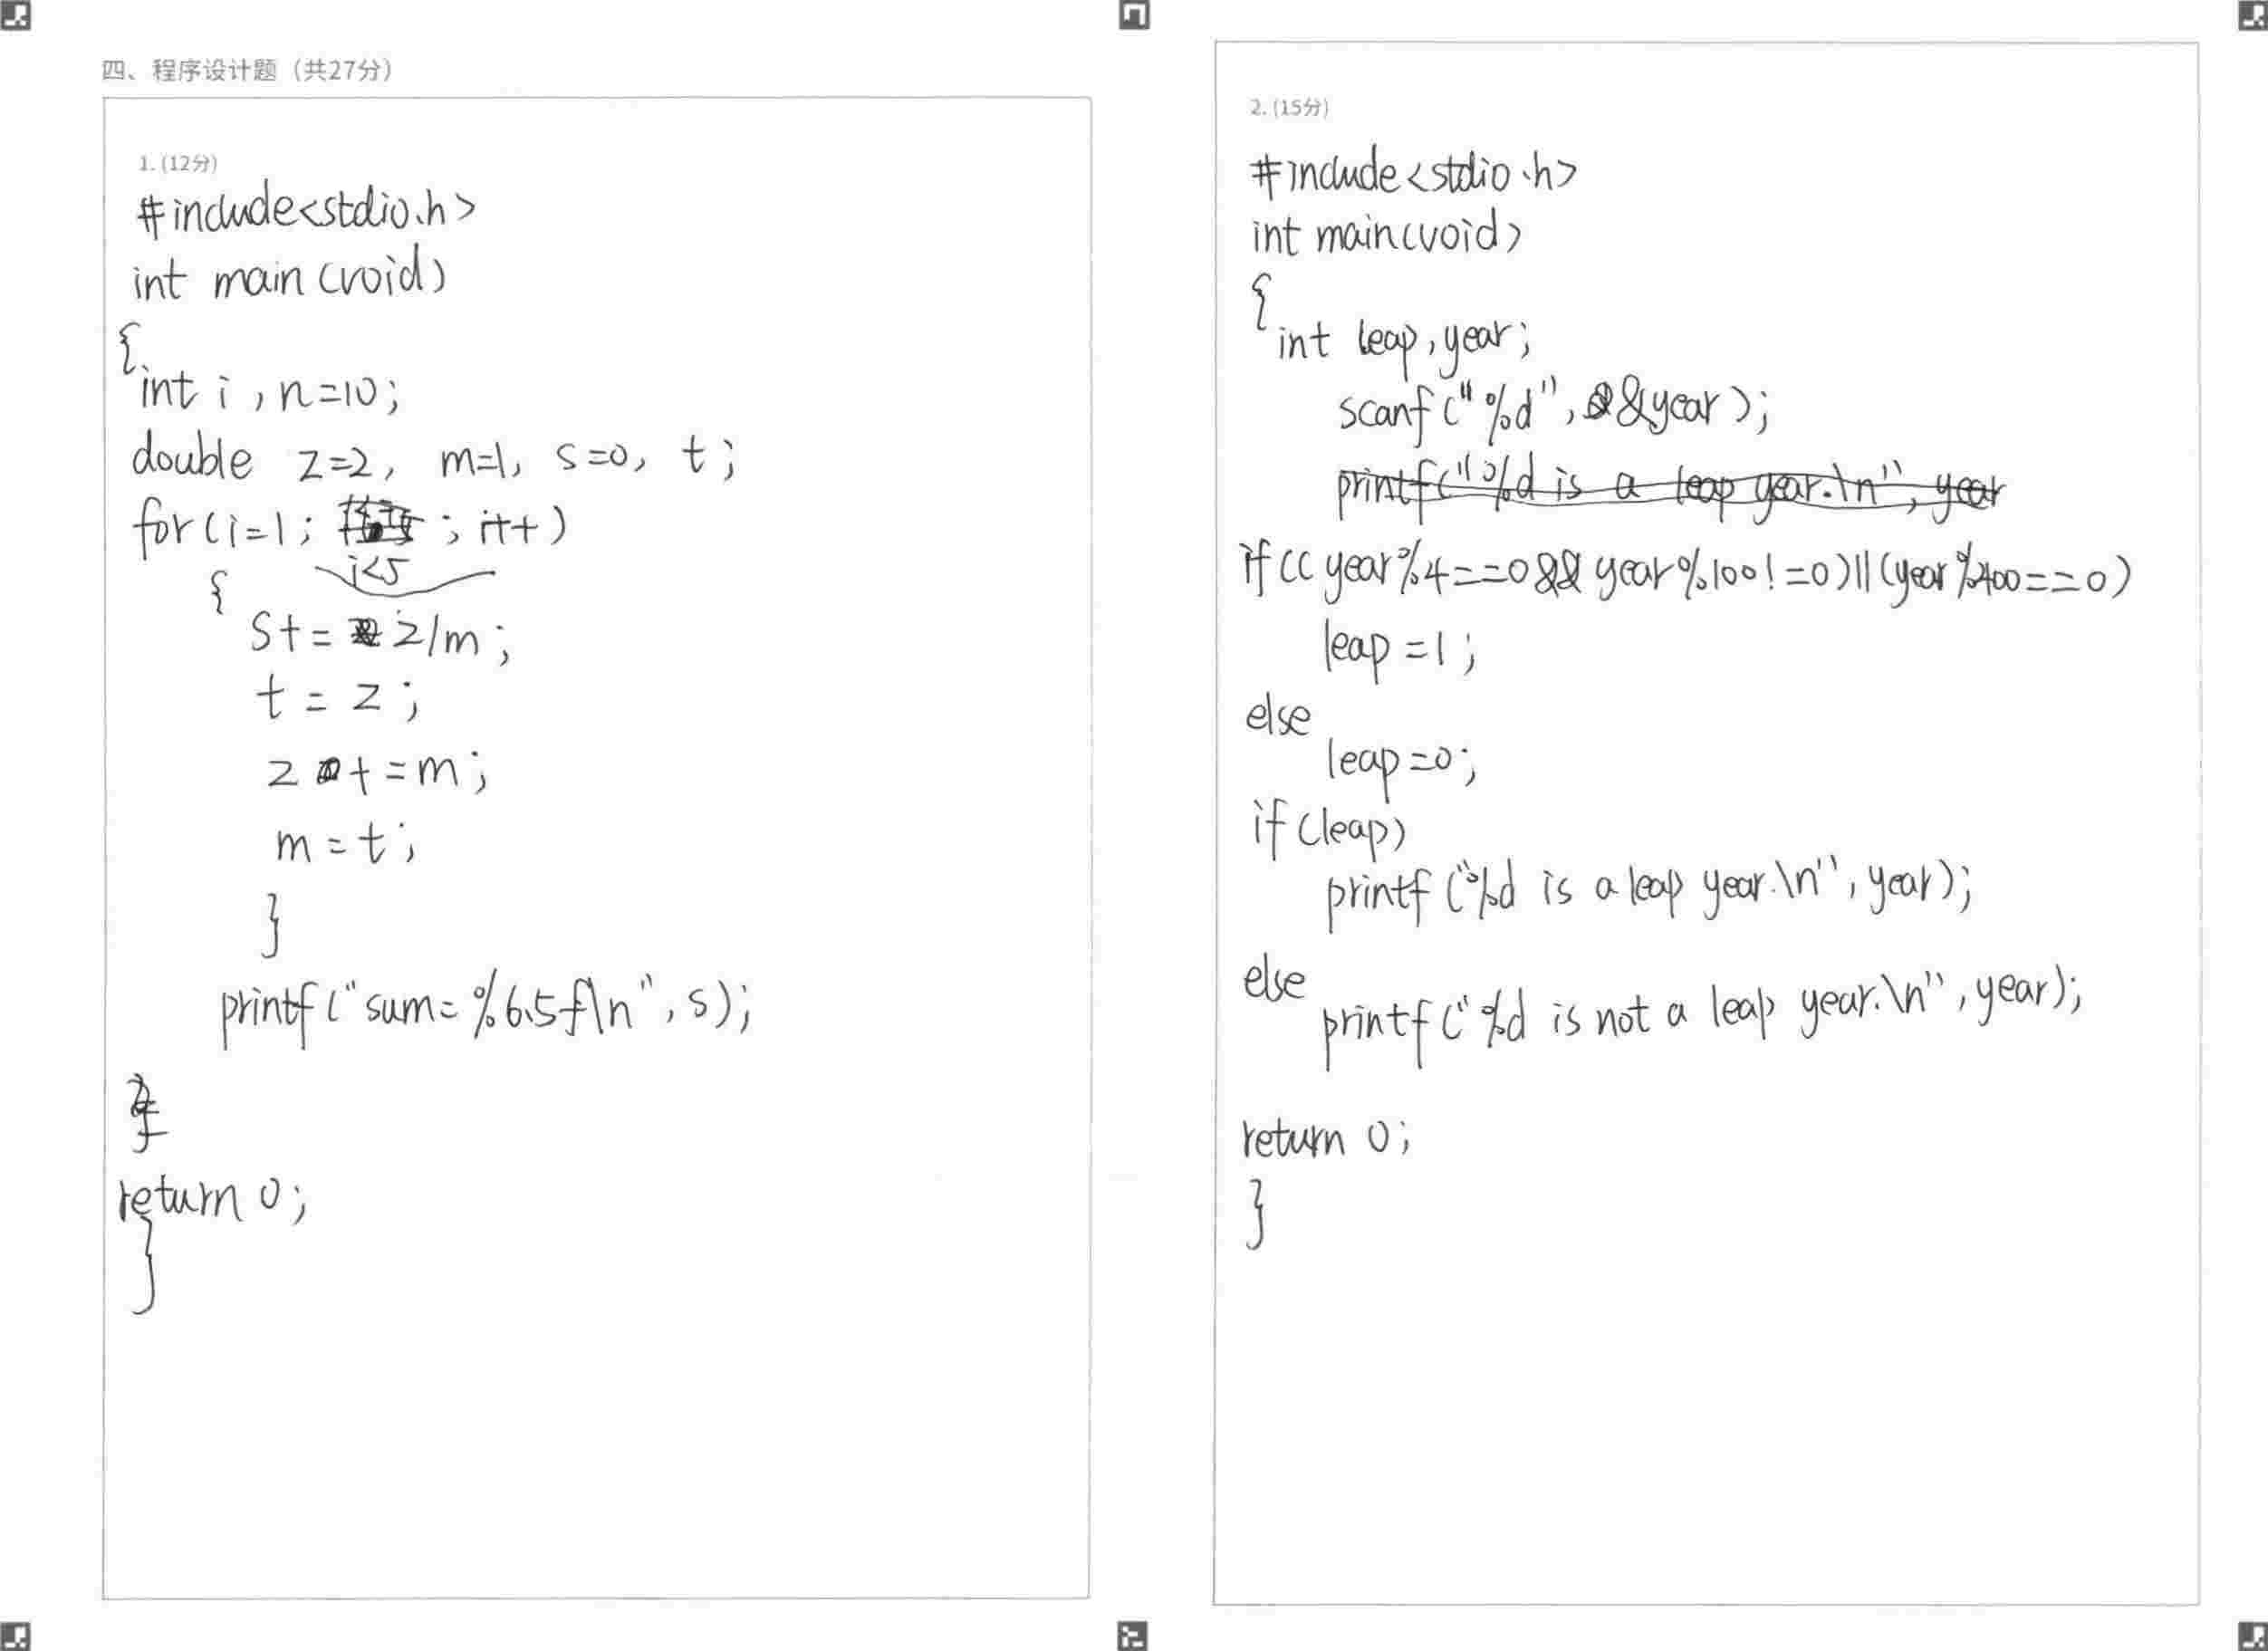 四、程序设计题（共27分）
1. (12分)
#include<stdio.h>
int main(void)
{
int i, n=10;
double z=2, m=1, s=0, t;
for(i=1; ; i++)
i<5
{
S+= z/m;
t = z;
z += m;
m = t;
}
printf("sum=%6.5f\n", s);
return 0;
}
2. (15分)
#include<stdio.h>
int main(void)
{
int leap, year;
scanf("%d", &year);
printf("%d is a leap year.\n", year
if((year%4==0&&year%100!=0)||(year%400==0)
leap=1;
else
leap=0;
if(leap)
printf("%d is a leap year.\n", year);
else
printf("%d is not a leap year.\n", year);
return 0;
}